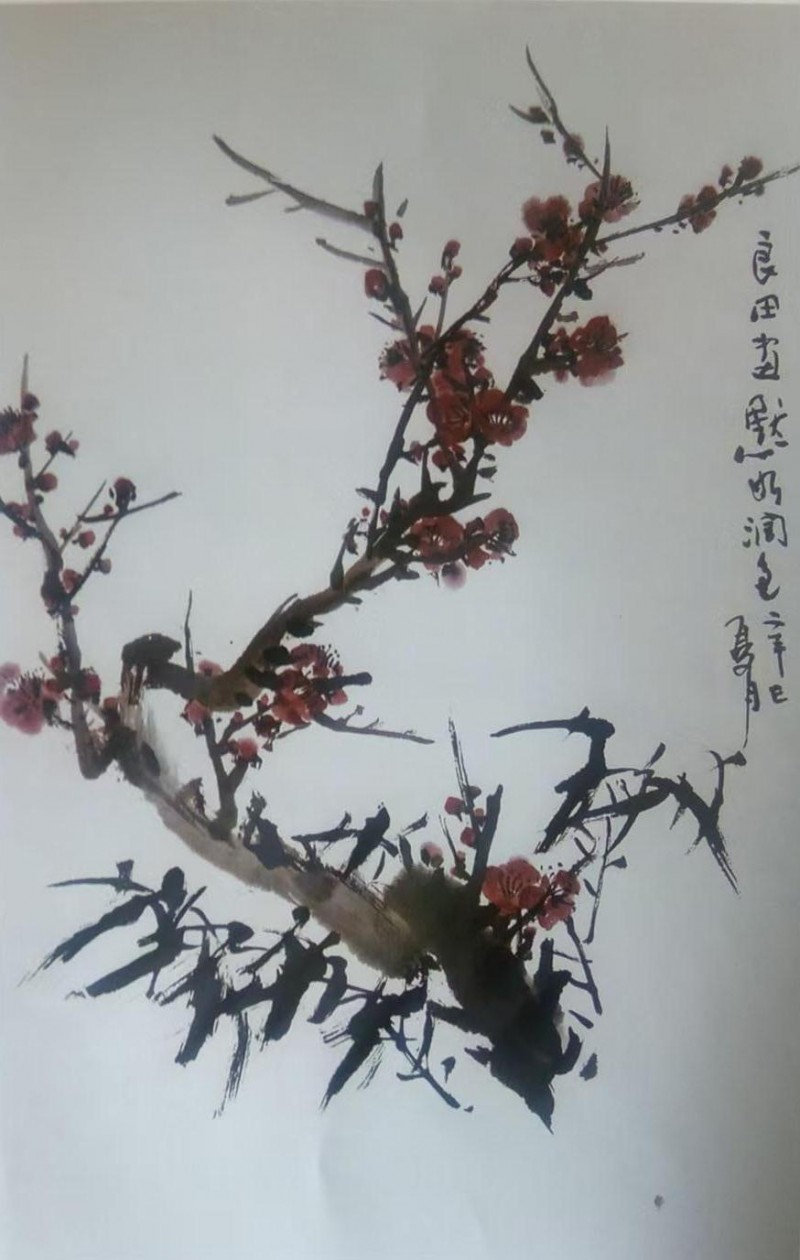 良田画 默
润色 辛巳
夏月